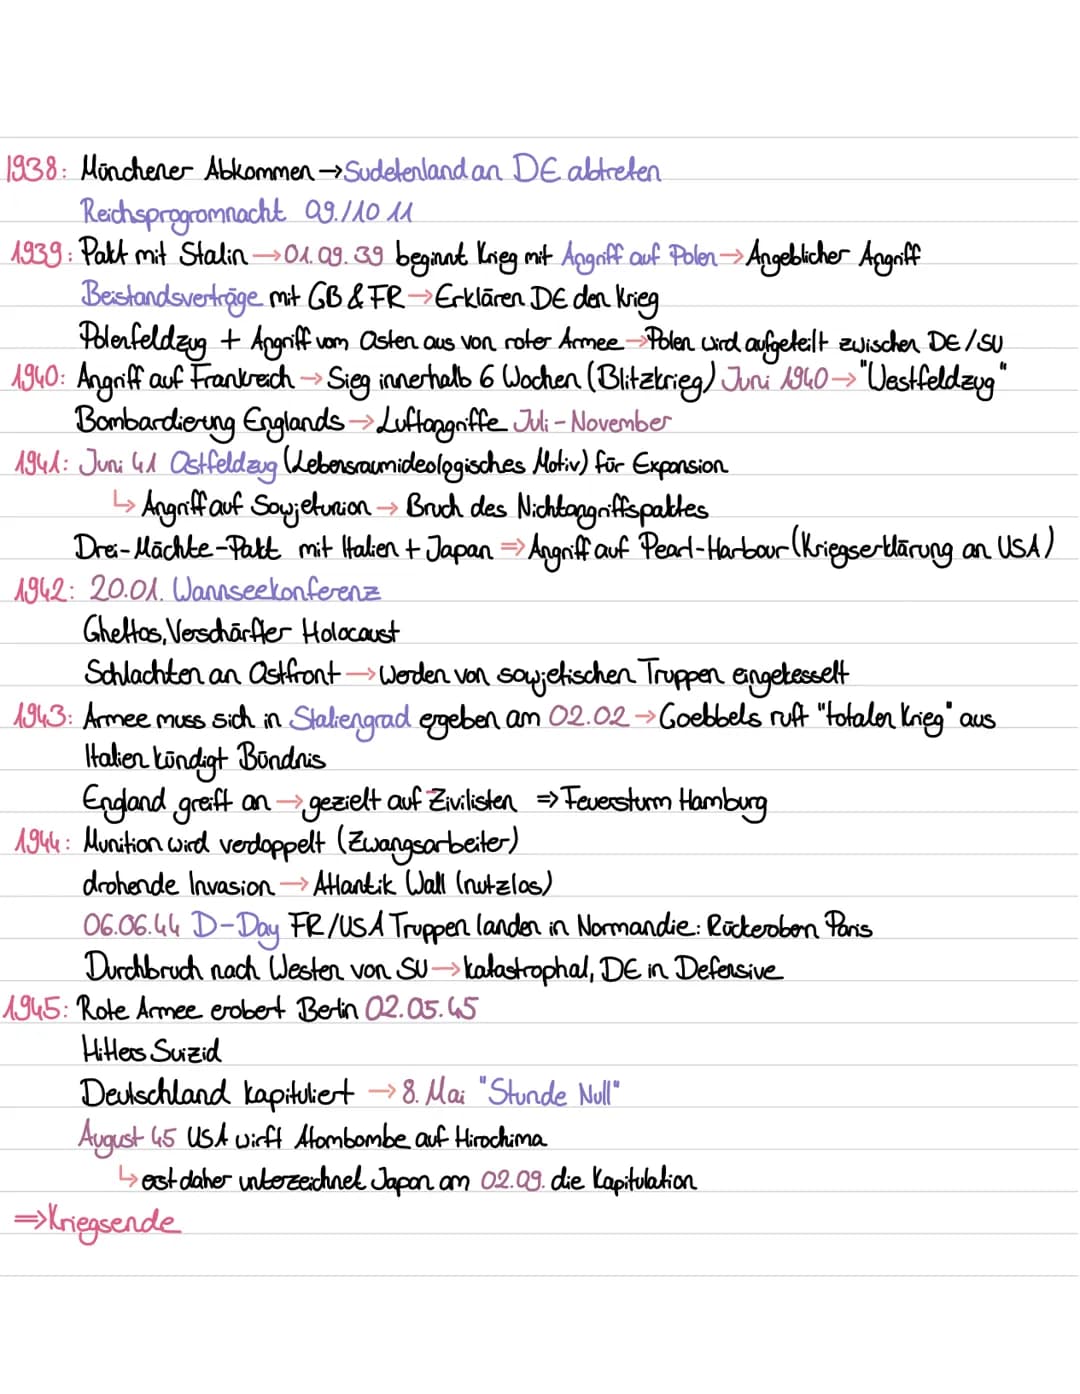 1938: Münchener Abkommen → Sudetenland an DE abtreten
Reichsprogromnacht 09./10 11
1939: Pakt mit Stalin → 01.09.39 beginnt Krieg mit Angriff auf Polen → Angeblicher Angriff
Beistandsverträge mit GB & FR → Erklären DE den Krieg
Polenfeldzug + Angriff vom Osten aus von roter Armee → Polen wird aufgeteilt zwischen DE/SU
1940: Angriff auf Frankreich → Sieg innerhalb 6 Wochen (Blitzkrieg) Juni 1940 → "Westfeldzug"
Bombardierung Englands → Luftangriffe Juli - November
1941: Juni 41 Ostfeldzug (Lebensraumideologisches Motiv) für Expansion
↳ Angriff auf Sowjetunion → Bruch des Nichtangriffspaktes
Drei-Mächte-Pakt mit Italien + Japan ⇒ Angriff auf Pearl-Harbour (Kriegserklärung an USA)
1942: 20.01. Wannseekonferenz
Ghettos, Verschärfter Holocaust
Schlachten an Ostfront → Werden von sowjetischen Truppen eingekesselt
1943: Armee muss sich in Staliengrad ergeben am 02.02 → Goebbels ruft "totalen Krieg" aus
Italien kündigt Bündnis
England greift an → gezielt auf Zivilisten ⇒ Feuersturm Hamburg
1944: Munition wird verdoppelt (Zwangsarbeiter)
drohende Invasion → Atlantik Wall (nutzlos)
06.06.44 D-Day FR/USA Truppen landen in Normandie: Rückeroben Paris
Durchbruch nach Westen von SU → katastrophal, DE in Defensive
1945: Rote Armee erobert Berlin 02.05.45
Hitlers Suizid
Deutschland kapituliert → 8. Mai "Stunde Null"
August 45 USA wirft Atombombe auf Hirochima
↳ erst daher unterzeichnet Japan am 02.09. die Kapitulation
⇒ Kriegsende